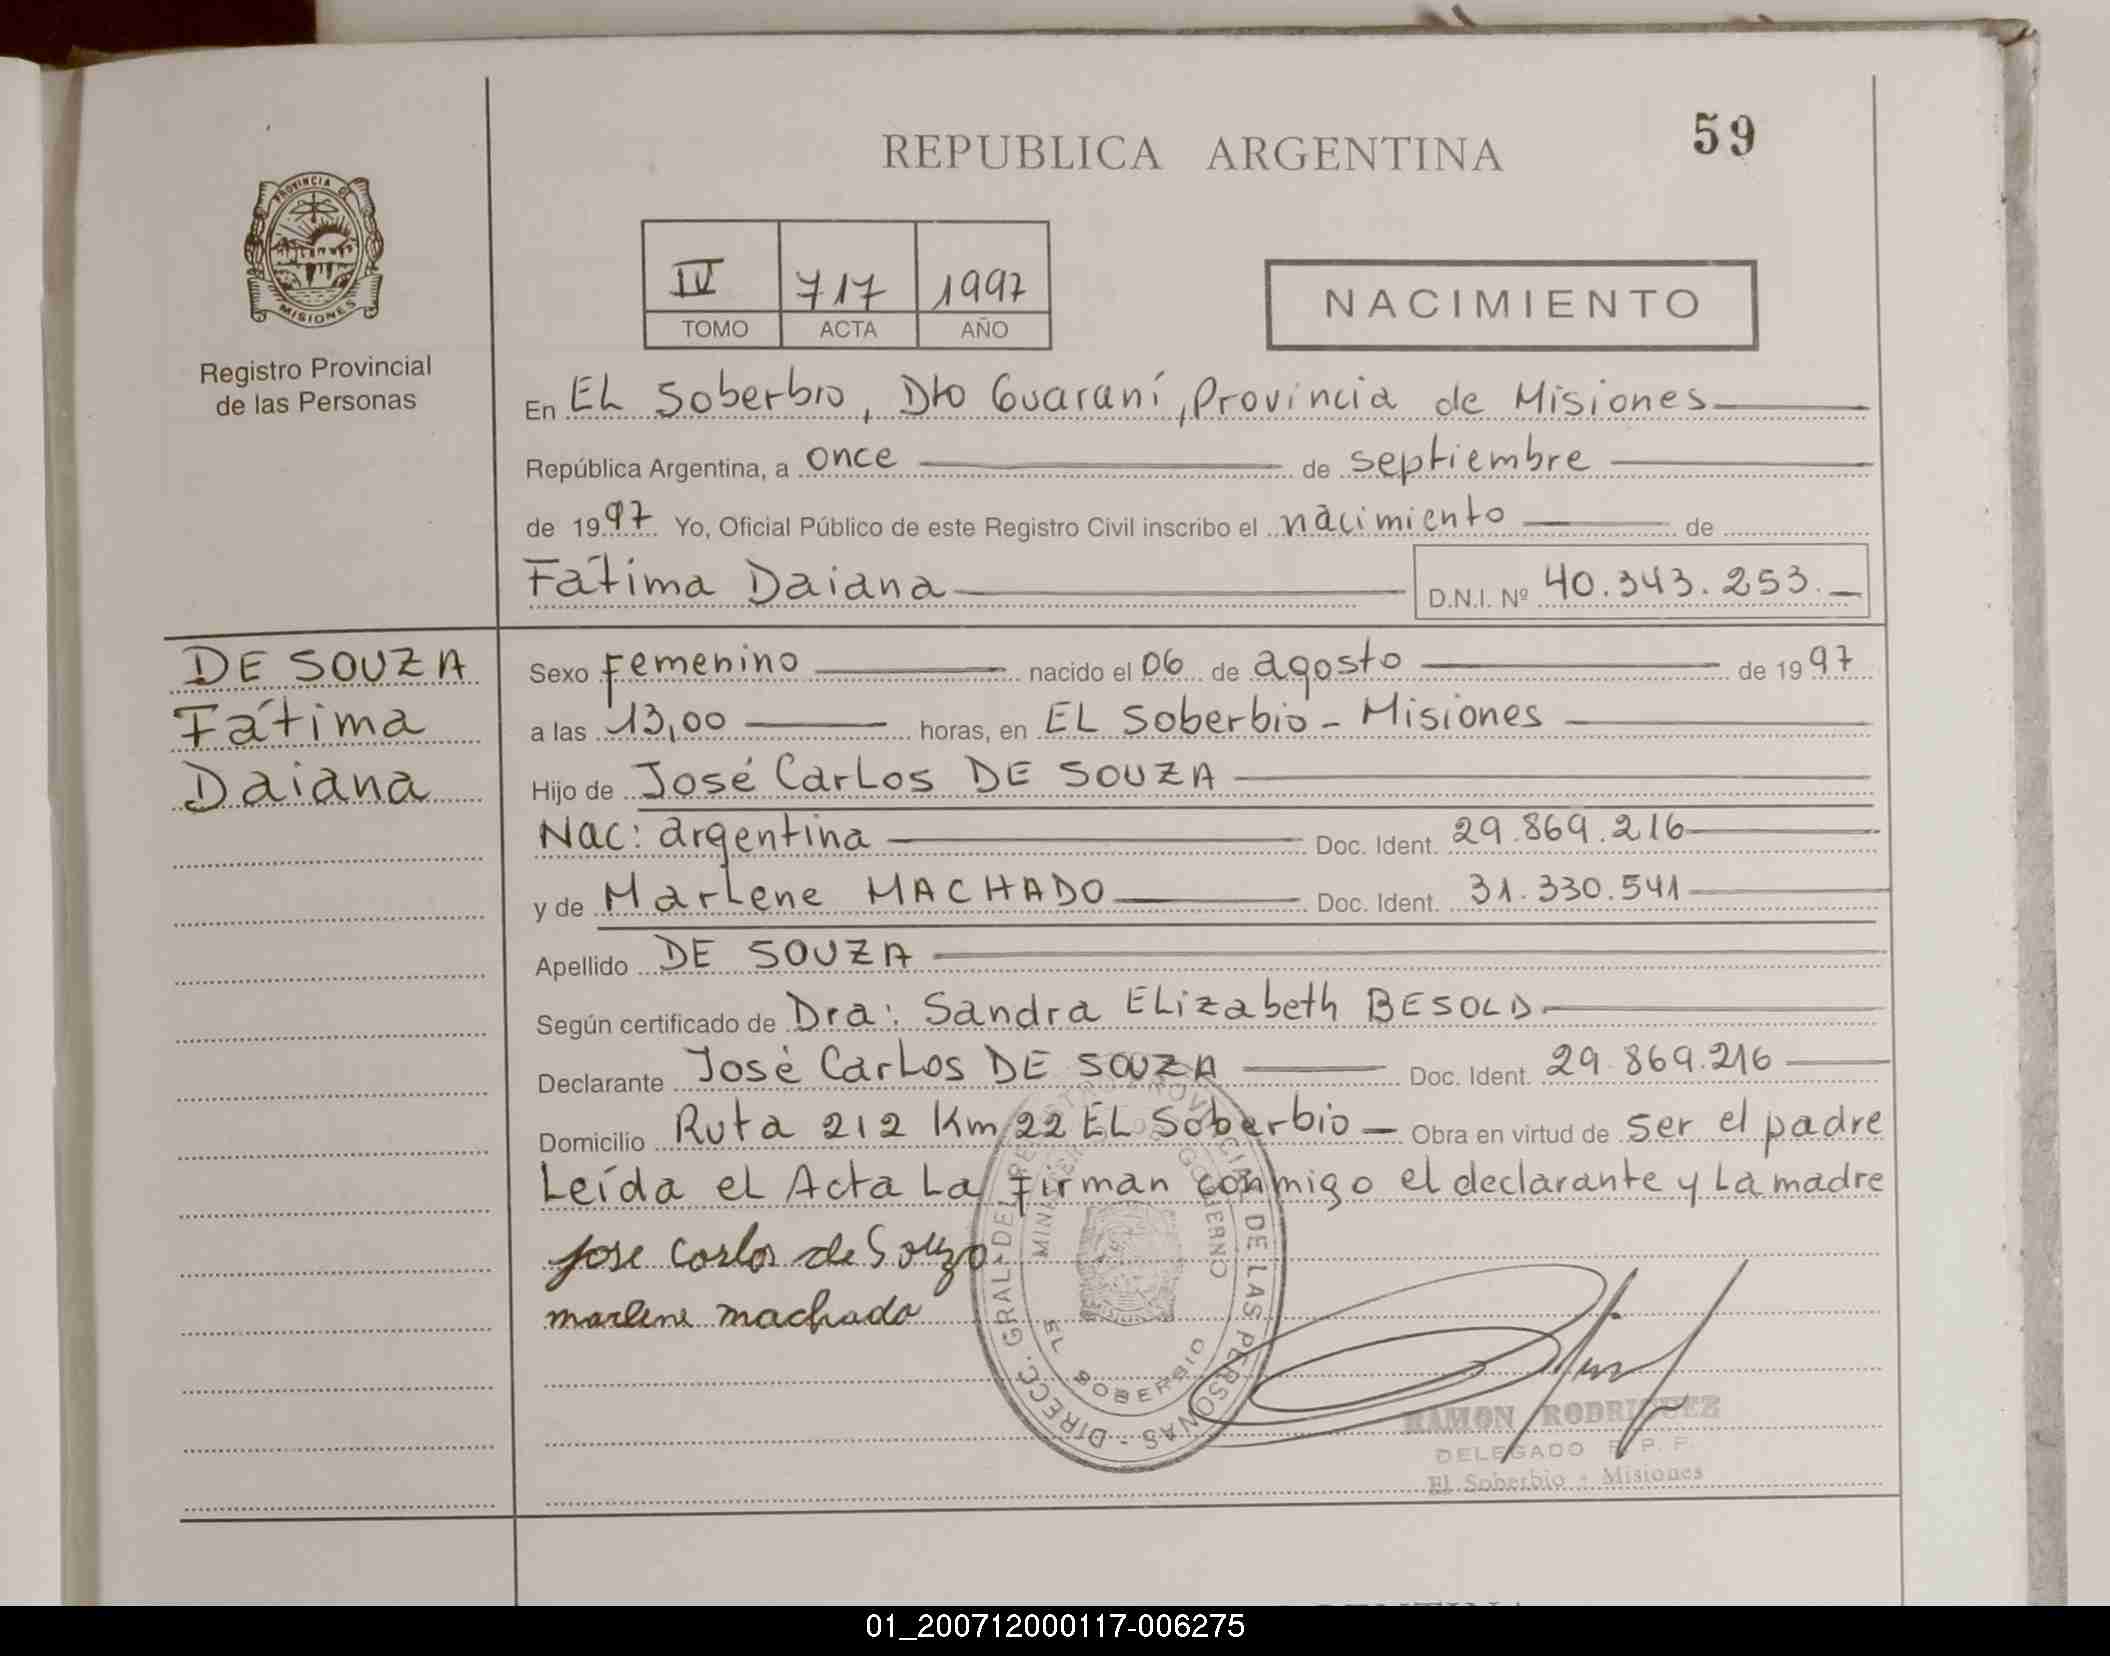 REPUBLICA ARGENTINA
59
PROVINCIA DE
MISIONES
Registro Provincial
de las Personas
IV 717 1997
TOMO ACTA AÑO
NACIMIENTO
En EL Soberbio, Dto Guaraní, Provincia de Misiones
República Argentina, a once de septiembre
de 1997 Yo, Oficial Público de este Registro Civil inscribo el nacimiento de
Fátima Daiana D.N.I. Nº 40.343.253.
DE SOUZA
Fátima
Daiana
Sexo Femenino nacido el 06 de agosto de 1997
a las 13,00 horas, en EL Soberbio - Misiones
Hijo de José CarLos DE SOUZA
Nac: argentina Doc. Ident. 29.869.216
y de MarLene MACHADO Doc. Ident. 31.330.541
Apellido DE SOUZA
Según certificado de Dra: Sandra ELizabeth BESOLD
Declarante José CarLos DE SOUZA Doc. Ident. 29.869.216
Domicilio Ruta 212 Km 22 EL Soberbio Obra en virtud de ser el padre
Leída el Acta La firman conmigo el declarante y La madre
jose carlos de Souza
marlene machado
DIRECC. GRAL. DEL REGISTRO PROVINCIAL DE LAS PERSONAS
GOBIERNO
EL SOBERBIO
RAMON RODRIGUEZ
DELEGADO
El Soberbio - Misiones
01_200712000117-006275